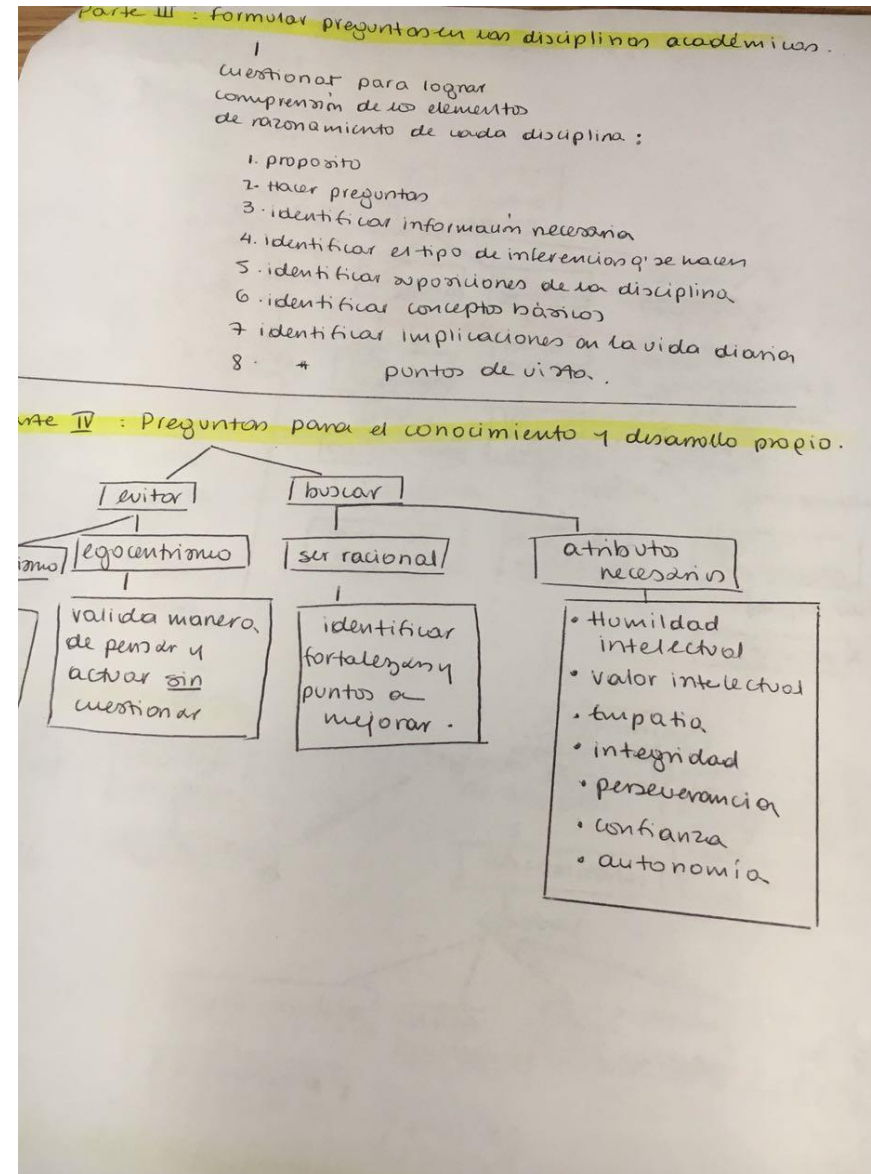 Parte III : formular preguntas en las disciplinas académicas.
cuestionar para lograr
comprensión de los elementos
de razonamiento de cada disciplina :
1. proposito
2- Hacer preguntas
3. identificar información necesaria
4. identificar el tipo de inferencias q' se hacen
5. identificar suposiciones de la disciplina
6. identificar conceptos básicos
7 identificar implicaciones en la vida diaria
8. " puntos de vista.
rte IV : Preguntas para el conocimiento y desarrollo propio.
evitar
buscar
ismo
egocentrismo
ser racional
atributos
necesarios
valida manera
de pensar y
actuar sin
cuestionar
identificar
fortalezas y
puntos a
mejorar.
• Humildad
intelectual
• valor intelectual
• Empatia
• integridad
• perseverancia
• confianza
• autonomía